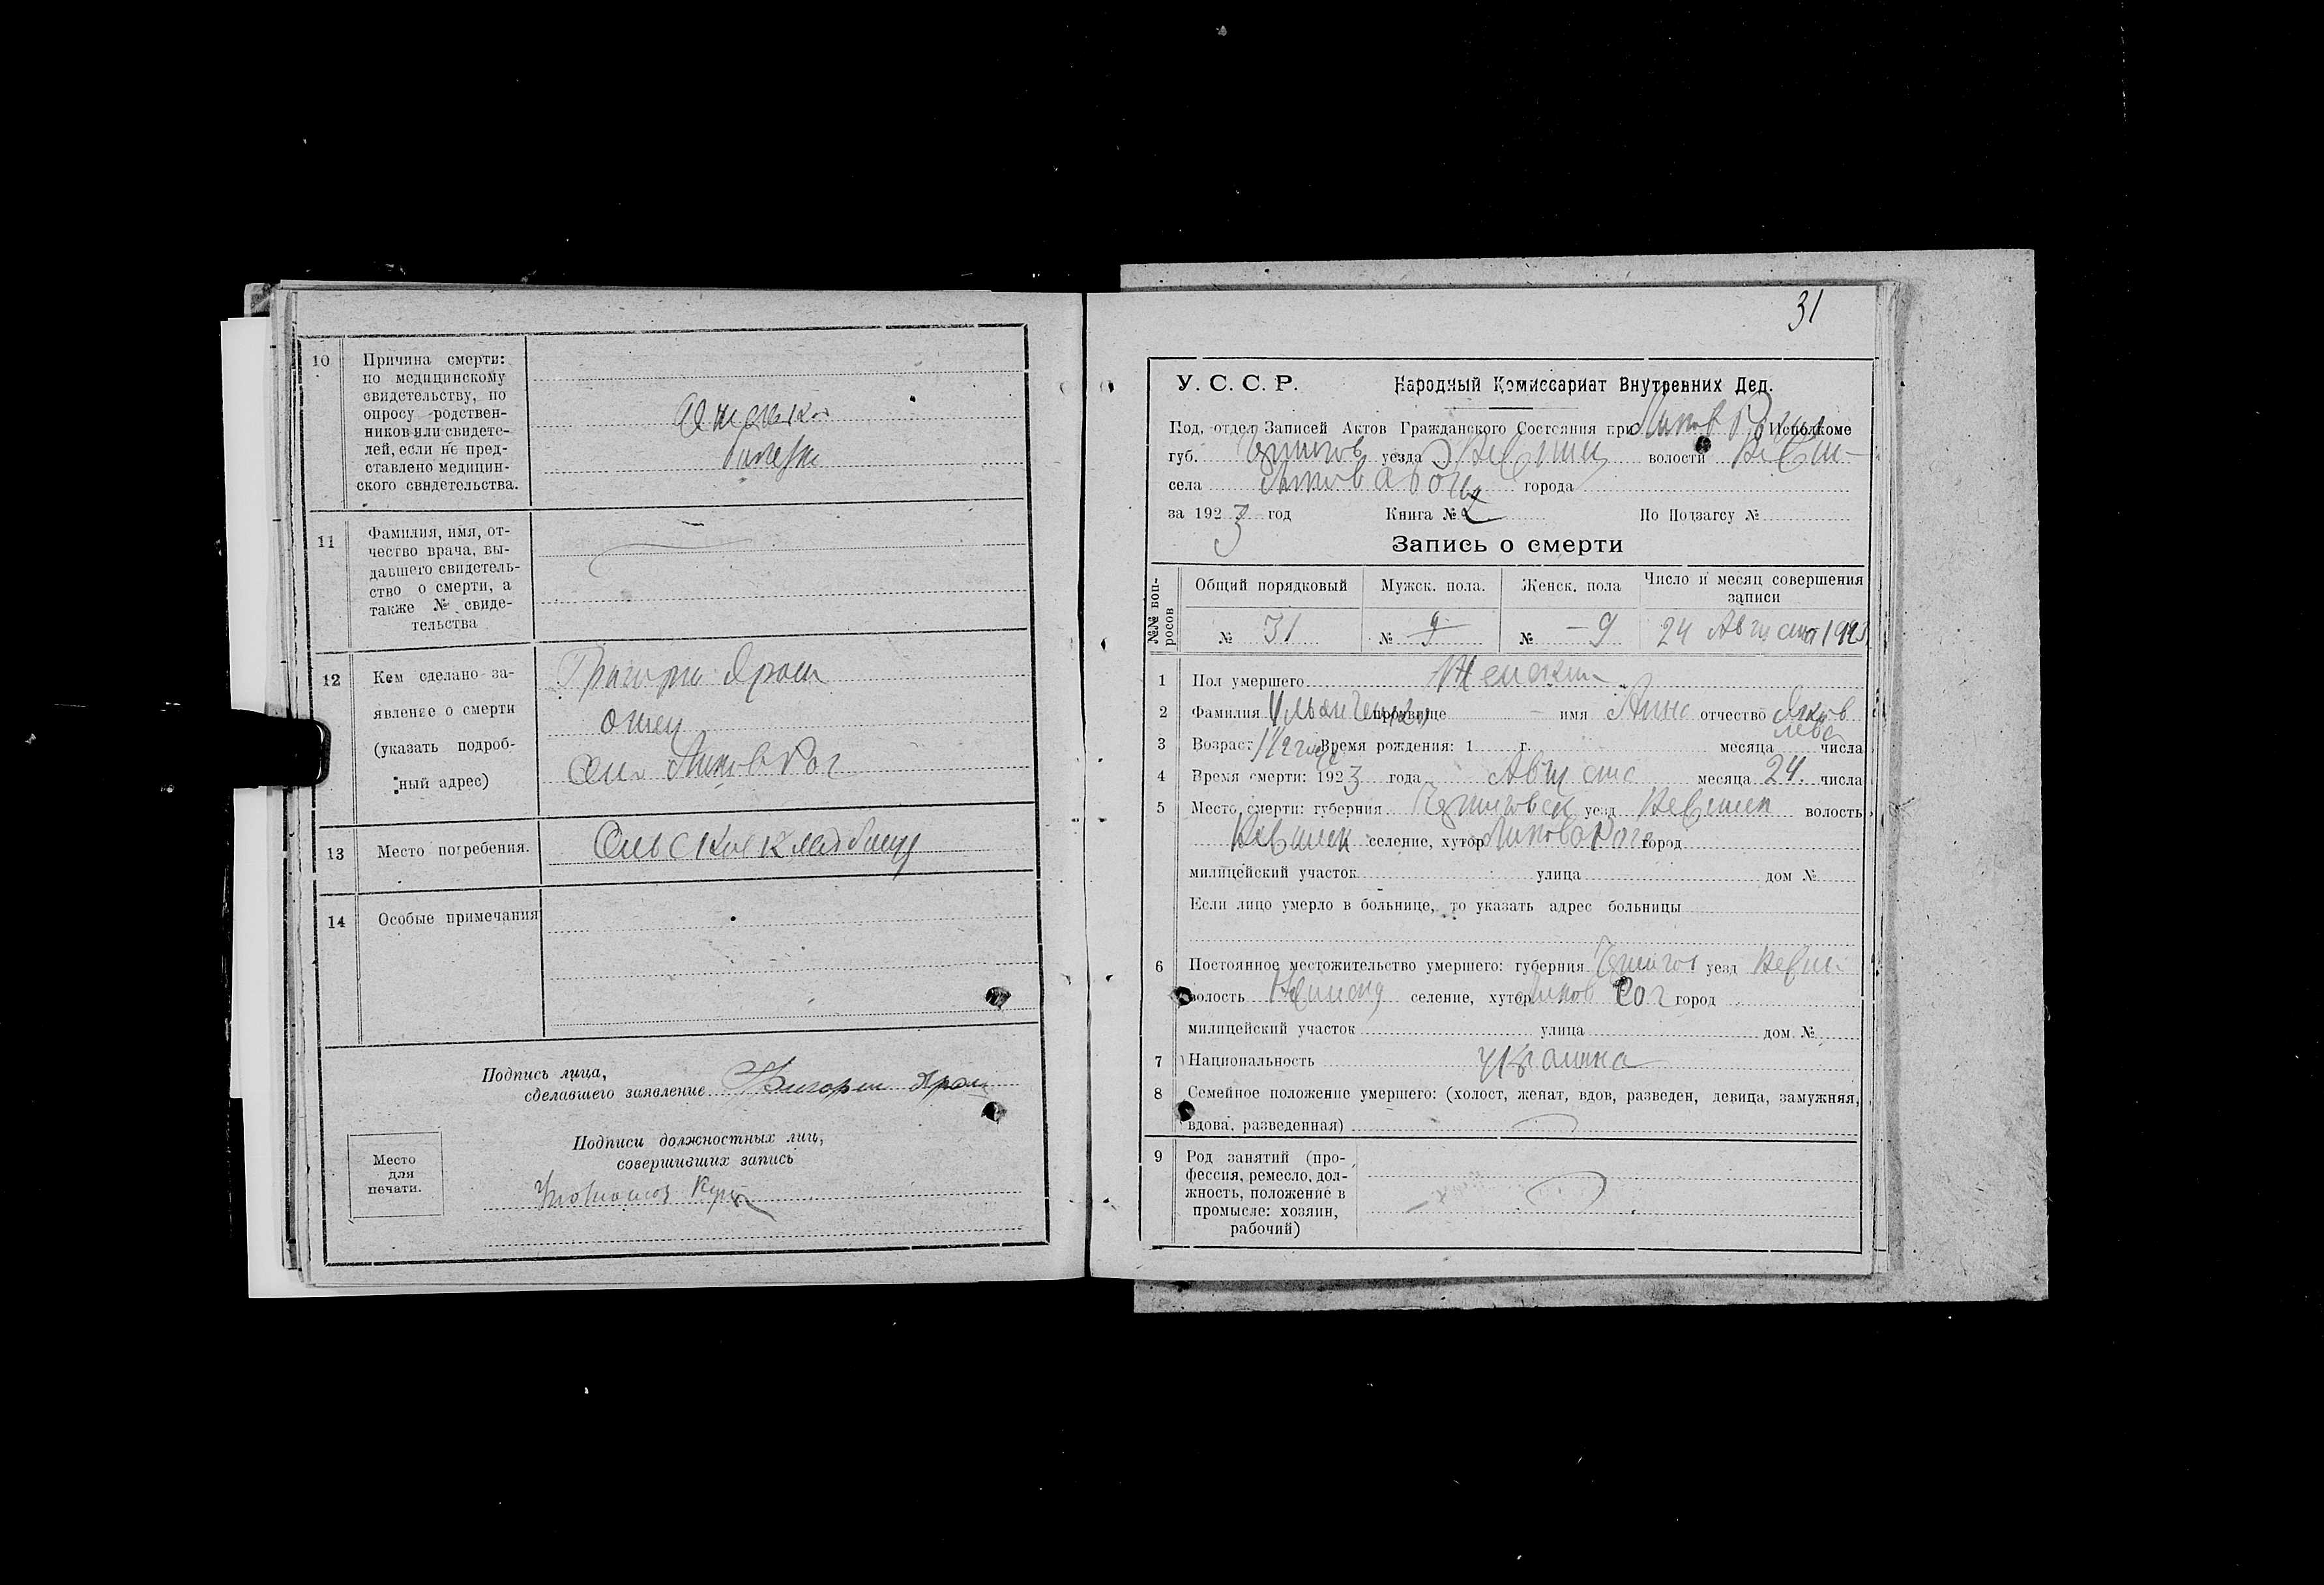 10
Причина смерти:
по медицинскому
свидетельству, по
опросу родствен-
ников или свидете-
лей, если не пред-
ставлено медицин-
ского свидетельства.
11
Фамилия, имя, от-
чество врача, вы-
давшего свидетель-
ство о смерти, а
также № свиде-
тельства
12
Кем сделано за-
явление о смерти
(указать подроб-
ный адрес)
Григори Ярош
отец
Село Липов Рог
13
Место погребения.
Сельское кладбище
14
Особые примечания
Подпись лица,
сделавшего заявление Григори Ярош
Подписи должностных лиц,
совершивших запись
Место
для
печати.
31
У. С. С. Р. Народный Комиссариат Внутренних Дел.
Под. отдел Записей Актов Гражданского Состояния при Липов Р Исполкоме
губ. Чернигов уезда волости
села города
за 1923 год Книга № 2 По Подзагсу №
Запись о смерти
№№ воп-
росов
Общий порядковый Мужск. пола. Женск. пола Число и месяц совершения
записи
№ 31 № 9 № – 9 24 Августа 1923
1 Пол умершего Женский
2 Фамилия прозвище – имя Анна отчество Яков
лева
3 Возраст Время рождения: 1 г. месяца числа
4 Время смерти: 1923 года Августа месяца 24. числа
5 Место смерти: губерния уезд волость
селение, хутор Липов Рог город
милицейский участок улица дом №
Если лицо умерло в больнице, то указать адрес больницы
6 Постоянное местожительство умершего: губерния Чернигов уезд
волость селение, хутор Липов Рог город
милицейский участок улица дом №
7 Национальность украинка
8 Семейное положение умершего: (холост, женат, вдов, разведен, девица, замужняя,
вдова, разведенная)
9 Род занятий (про-
фессия, ремесло, дол-
жность, положение в
промысле: хозяин,
рабочий)